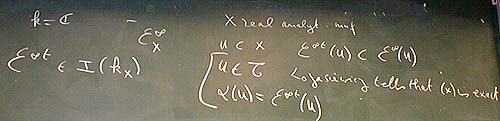 k = ℂ
X real analyt. mnf
ℰ^∞_X
U ⊂ X ℰ^{∞t}(U) ⊂ ℰ^∞(U)
ℰ^{∞t} ∈ I(k_X)
U ∈ 𝒯 Lojasiewicz tells that (x) is exact
α(U) = ℰ^{∞t}(U)